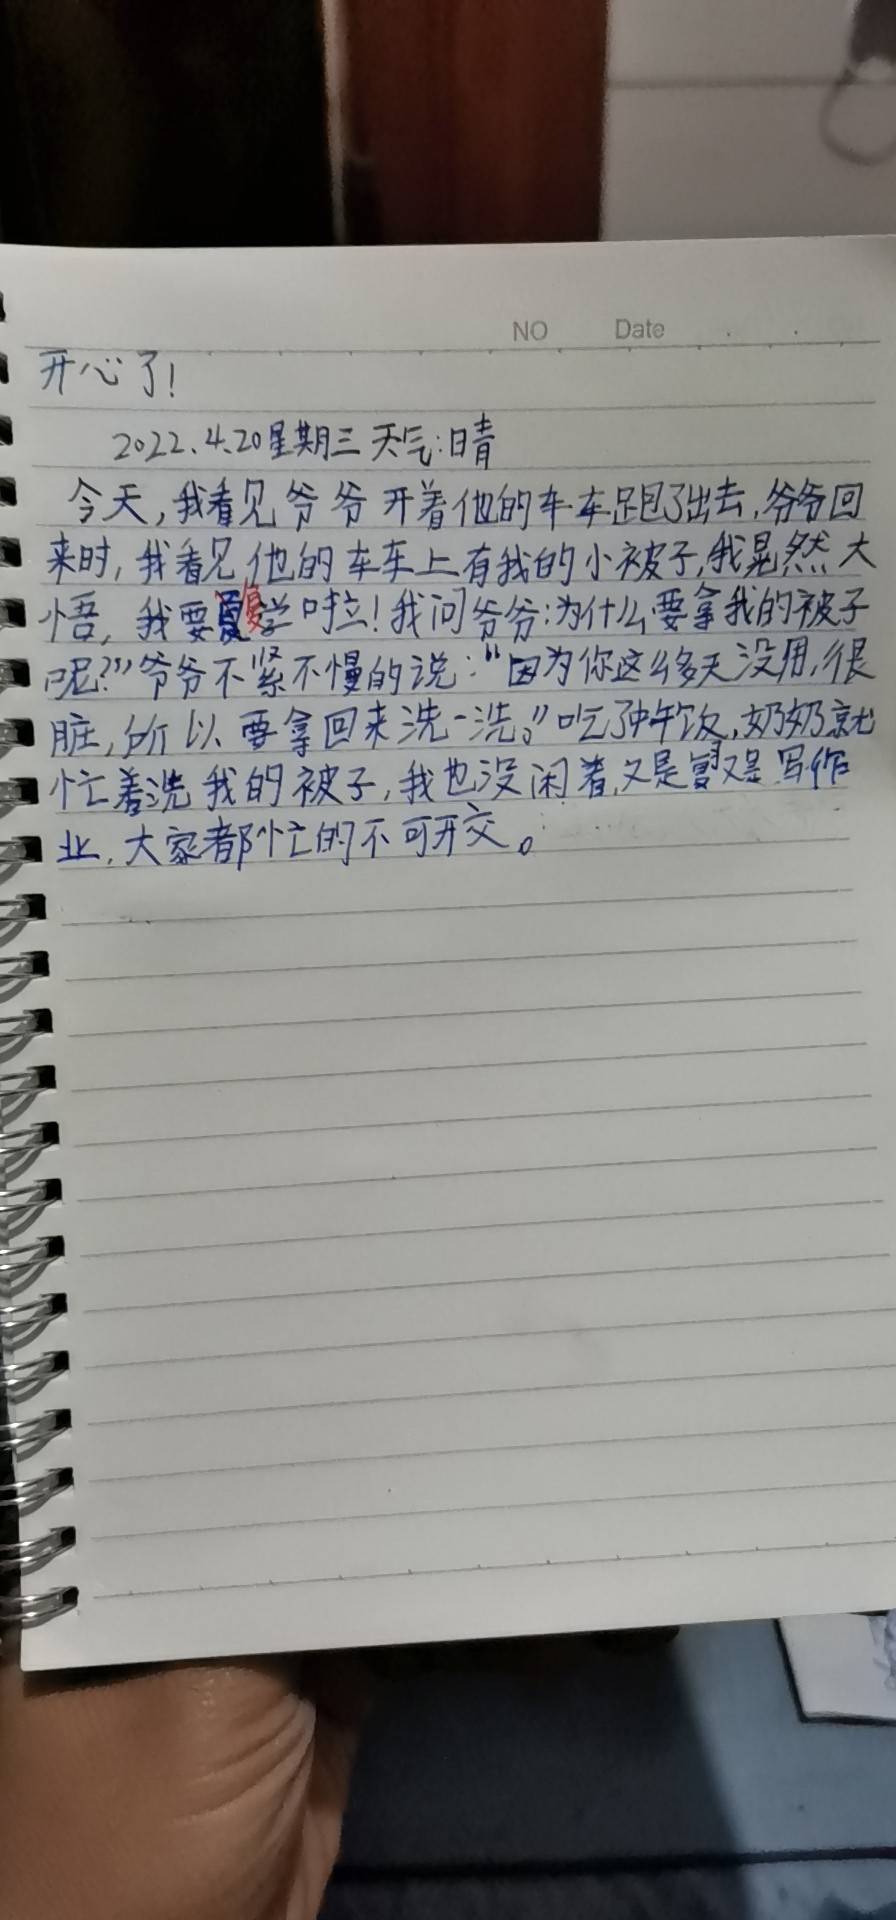 NO Date
开心了！
2022.4.20星期三 天气：晴
今天，我看见爷爷开着他的车车跑了出去，爷爷回
来时，我看见他的车车上有我的小被子，我晃然大
悟，我要复学啦！我问爷爷：为什么要拿我的被子
呢？”爷爷不紧不慢的说：“因为你这么多天没用，很
脏，所以要拿回来洗一洗。”吃了中午饭，奶奶就
忙着洗我的被子，我也没闲着，又是又是写作
业，大家都忙的不可开交。